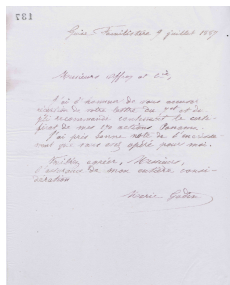 137
Guise, Familistère, 9 juillet 1887
Messieurs Offroy et Cie,
J'ai l'honneur de vous accuser
réception de votre lettre du et de
pli recommandé contenant le certi-
ficat de mes actions Panama.
J'ai pris bonne note de l'encaisse-
ment que vous avez opéré pour moi.
Veuillez agréer, Messieurs,
l'assurance de mon entière consi-
dération
Marie Godin